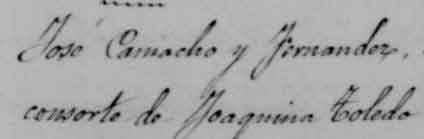 José Camacho y Fernandez,
consorte de Joaquina Toledo